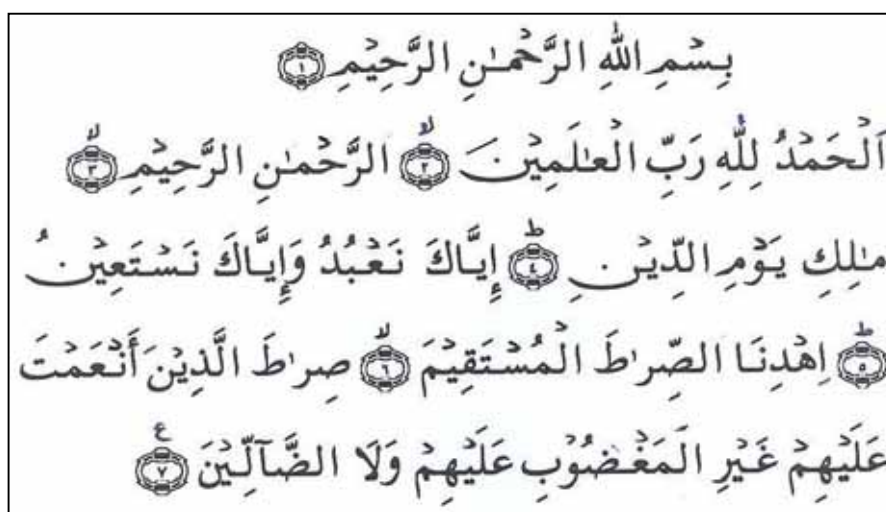 بِسْمِ اللهِ الرَّحْمٰنِ الرَّحِيْمِ ۝١
اَلْحَمْدُ لِلّٰهِ رَبِّ الْعٰلَمِيْنَ ۙ۝٢ الرَّحْمٰنِ الرَّحِيْمِ ۙ۝٣
مٰلِكِ يَوْمِ الدِّيْنِ ۗ۝٤ إِيَّاكَ نَعْبُدُ وَإِيَّاكَ نَسْتَعِيْنُ
ۗ۝٥ اِهْدِنَا الصِّرٰطَ الْمُسْتَقِيْمَ ۙ۝٦ صِرٰطَ الَّذِيْنَ أَنْعَمْتَ
عَلَيْهِمْ غَيْرِ الْمَغْضُوْبِ عَلَيْهِمْ وَلَا الضَّآلِّيْنَ ۝٧ ع